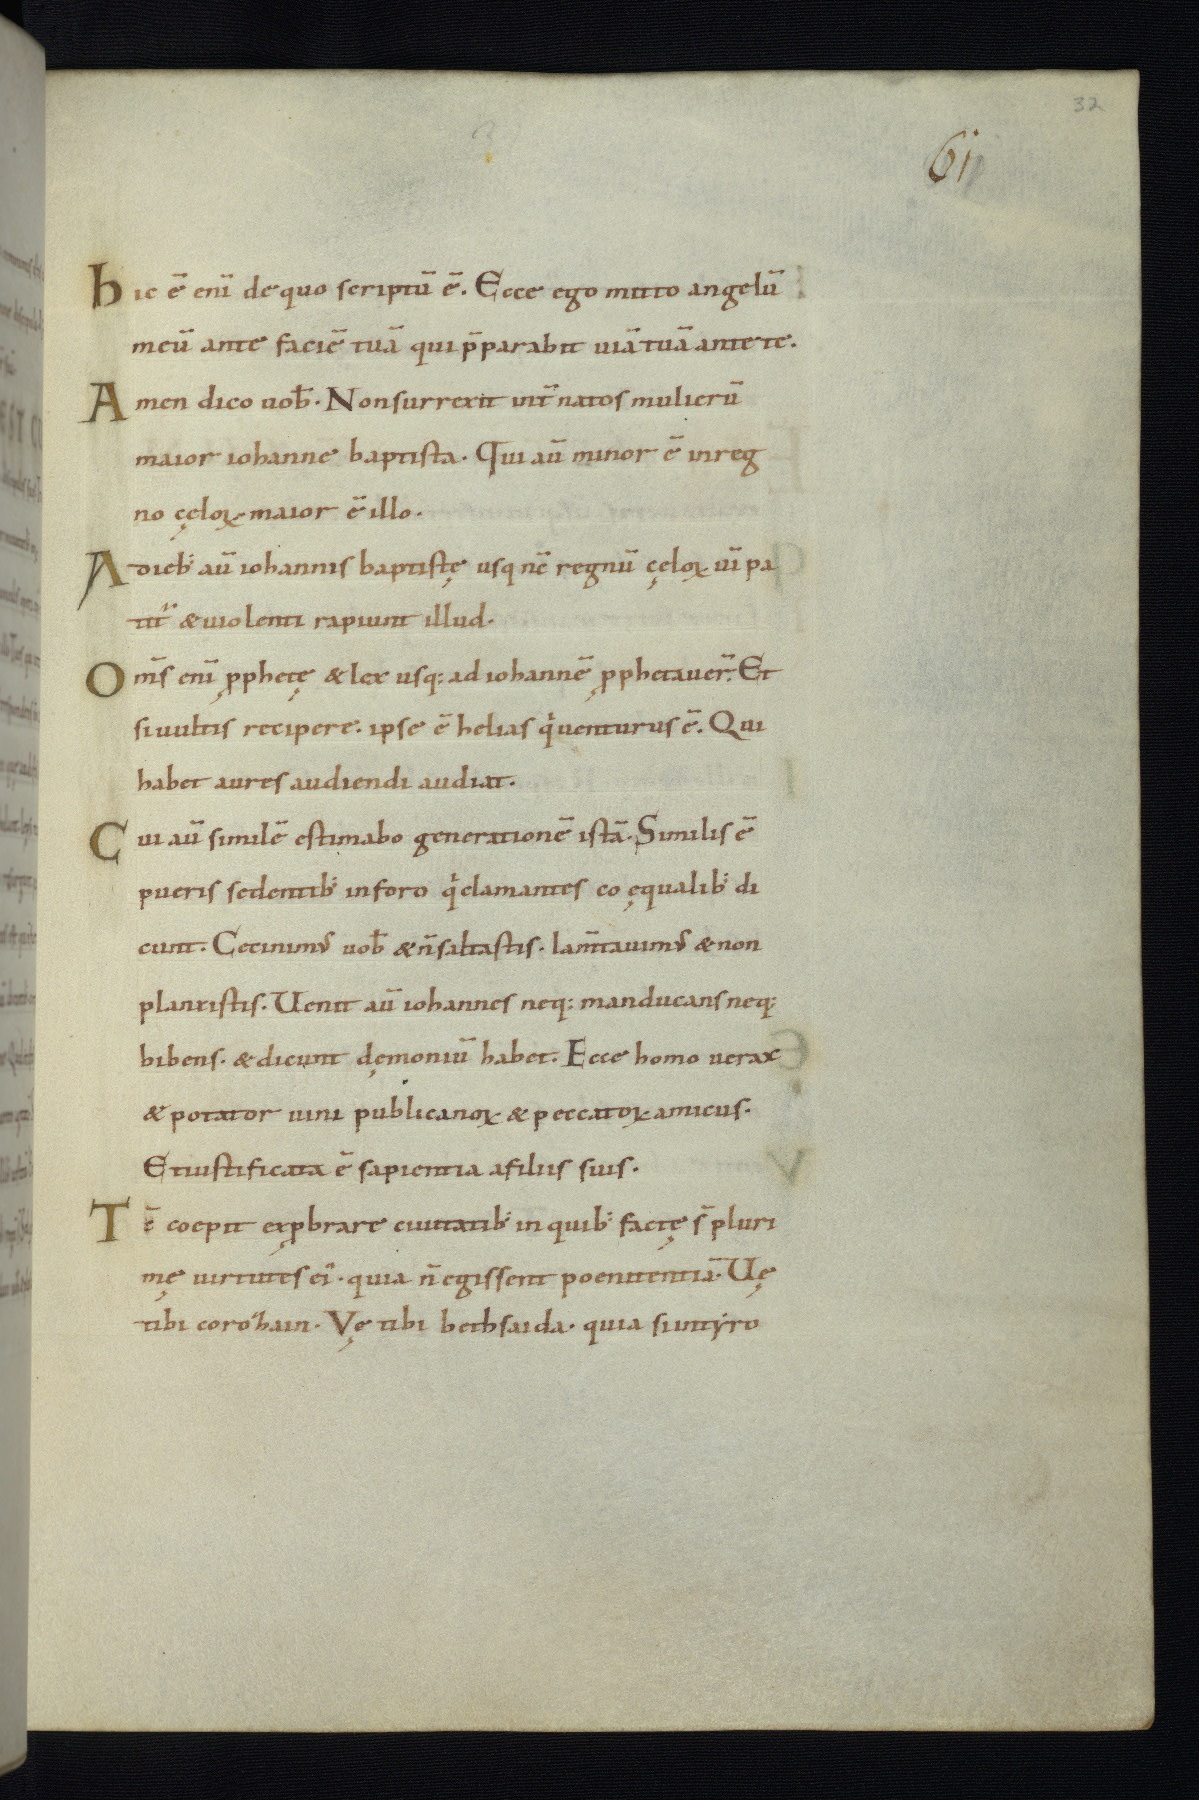 32
61
hic ē enī de quo scriptū ē. Ecce ego mitto angelū
meū ante faciē tuā qui p̄parabit uiā tuā ante te.
Amen dico uob̄. Non surrexit int̄ natos mulierū
maior iohanne baptista. Qui aū minor ē in reg
no cęloꝝ maior ē illo.
A dieb; aū iohannis baptistę usq nc̄ regnū cęloꝝ uī pa
tit̄ & uiolenti rapiunt illud.
Om̄s enī ꝓphetę & lex usq; ad iohannē ꝓphetauer̄. Et
si uultis recipere. ipse ē helias qͥ uenturus ē. Qui
habet aures audiendi audiat.
Cui aū similē estimabo generationē istā. Similis ē
pueris sedentib; in foro qͥ clamantes co ęqualib; di
cunt. Cecinim᷒ uob̄ & n̄ saltastis. lam̄tauim᷒ & non
planxistis. Uenit aū iohannes neq; manducans neq;
bibens. & dicunt dęmoniū habet. Ecce homo uorax
& potator uini publicanoꝝ & peccatoꝝ amicus.
Et iustificata ē sapientia a filiis suis.
Tc̄ coepit exꝓbrare ciuitatib; in quib; factę s̄ pluri
mę uirtutes ei᷒. quia n̄ egissent poenitentiā. Uę
tibi corozain. Vę tibi bethsaida. quia si in tyro